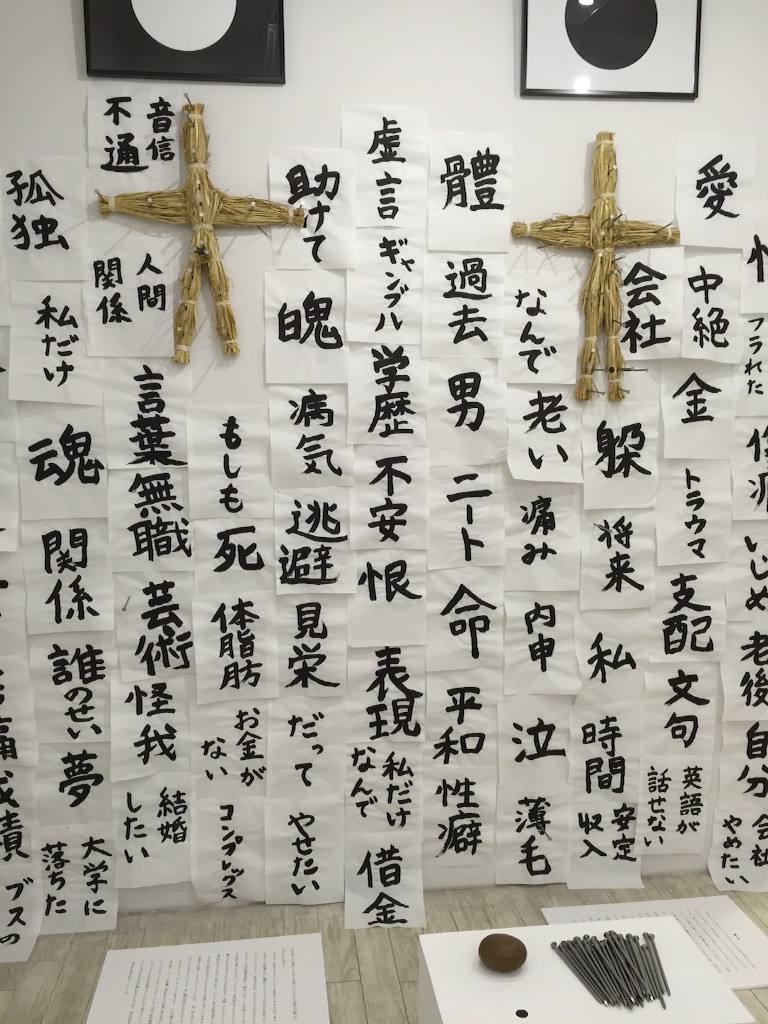 フラれた
いじめ
老後
自分
会社
やめたい
愛
中絶
金
トラウマ
支配
文句
英語が
話せない
会社
躱
将来
私
時間
安定
収入
なんで
老い
痛み
内申
泣
薄毛
體
過去
男
ニート
命
平和
性癖
虚言
ギャンブル
学歴
不安
恨
表現
私だけ
なんで
借金
助けて
魄
病気
逃避
見栄
だって
やせたい
もしも
死
体脂肪
お金が
ない
コンプレックス
音信
不通
人間
関係
言葉
無職
芸術
怪我
結婚
したい
孤独
私だけ
魂
関係
誰のせい
夢
大学に
落ちた
ブスの